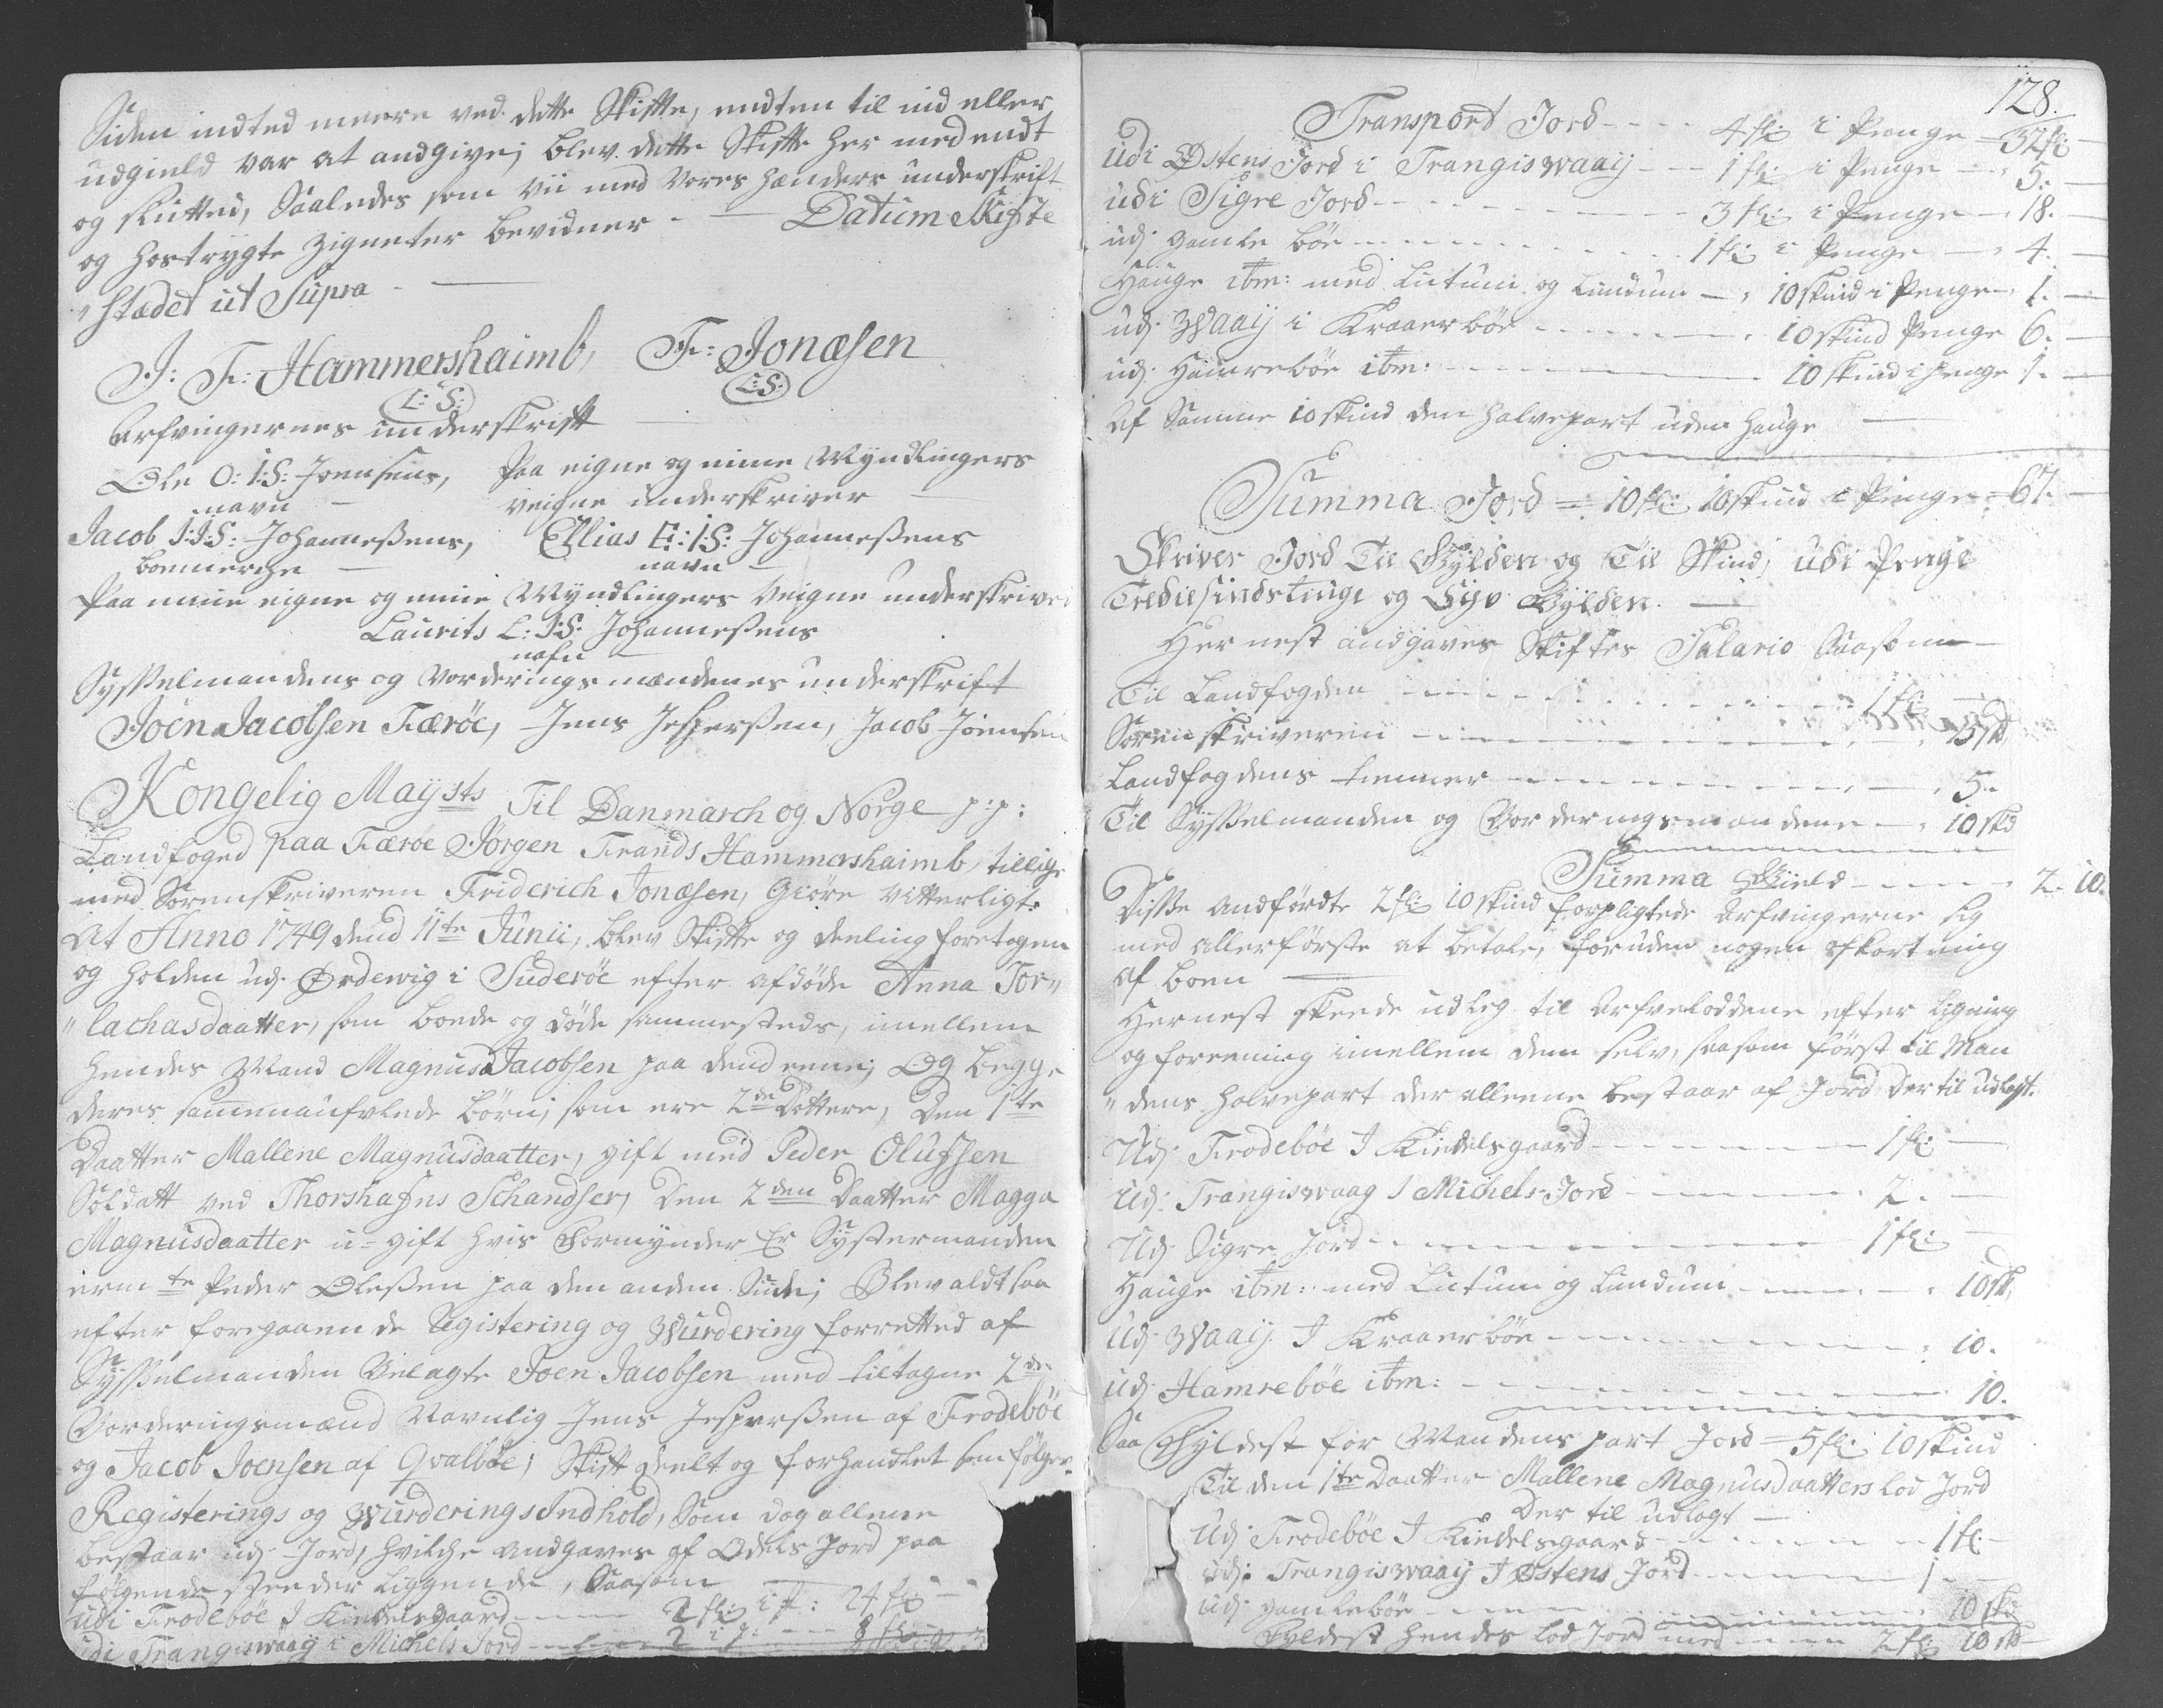 Siden indted meere ved dette Skifte, endten til ind eller
udgield var at andgive; blev dette Skifte her med endt
og slutted, Saaledes som vii med vores hænders underskrift
og hostrygte Zigneter bevidner - Datum Skifte
"stædet ut Supra -
J: F: Hammershaimb, F: Jonæsen
L:S: L:S:
Arfvingernes underskrift
Ole O:I:S: Joensens, Paa eigne og mine Myndlingers
navn veigne underskriver
Jacob I:I:S: Johanneßens, Ellias E:I:S: Johanneßens
boemerche navn
Paa mine eigne og mine Myndlingers veigne underskriver
Laurits L:I:S: Johanneßens
nafn
Sysselmandens og Vorderings mændenes underskrift
Joen Jacobsen Færöe, Jens Jesperßen, Jacob Joensen
Kongelig Maysts Til Danmarch og Norge p:p:
Landfoged paa Færöe Jörgen Frands Hammershaimb, tillige
med Sorenskriveren Friderich Jonæsen, Giöre vitterligt:
At Anno 1749 dend 11te Junii, blev Skifte og deeling foretagen
og holden udj Ördewig i Suderöe efter afdöde Anna Tor"
"lachasdaatter, som boede og döde sammesteds, imellem
hendes Mand Magnus Jacobsen paa dend eene; Og begge
deres sammenaufvlede börn; som ere 2de Döttere, Den 1te
Daatter Mallene Magnusdaatter, gift med Peder Olufsen
Soldatt ved Thorshafns Schandser, Den 2den Daatter Magga
Magnusdaatter u-gift hvis Formynder Er Systermanden
erm te Peder Olesßen paa den anden Siide; Blev aldt saa
efter foregaaende Registering og Wurdering forretted af
Sysselmanden Velagte Joen Jacobsen med tiltagne 2de
Vorderingsmænd Navnlig Jens Jesperßen af Frodeböe
og Jacob Joensen af Qvalböe; Skift deelt og forhandlet som fölger.
Registerings og Wurderings Indhold, Som dog alleene
bestaar udj Jord, hvilche andgaves af Odels Jord paa
fölgende stæeder liggende, Saasom
udi Frodeböe I Kindelsgaard - - - 2 fl: i p: 24 fl: -
udi Trangiswaag i Michels Jord - - - 2 i p: - - 8 fl: -
128.
Transport Jord - - - - 4 fl: i Penge - 32 fl: -
udi Østens Jord i Trangiswaaij - - - 1 fl: i Penge - - 5. -
udi Sigre Jord - - - - - - 3 fl: i Penge - 18. -
udj gamle böe - - - - - - 1 fl: i Penge - - 4. -
Hauge ibm: med Lutum og Lundum - , 10 skind i Penge, 1. -
udj Waaij i Kraaerböe - - - - - , 10 skind Penge 6. -
udj Hamreböe ibm: - - - - - - 10 skind i Penge 1. -
Af Samme 10 skind den halvepart uden hauge -
Summa Jord = 10 fl: 10 skind i Penge = 67. -
Skriver Jord Tii Gylden og Tii Skind; udi Penge
Trediesindstiuge og Syv Gylden. -
Her nest andgaves Skiftes Salario Saasom -
Til Landfogden - - - - - - 1 fl: -
Sorenskriveren - - - - - - 15 sk,
Landfogdens tienner - - - - - - , 5. -
Til Sysselmanden og Vorderingsmændene - , 10 skd
Summa Gield - - - - - 2. 10.
Disße andfördte 2 fl: 10 skind forpligtede Arfvingerne sig
med allerförste at betale, foruden nogen afkortning
af boen -
Hernest skeede udleg til Arfveloddene efter ligning
og forrening imellem dem selv, saasom först til Man
"dens halvepart der alleene bestaar af Jord dertil udlagt.
Udj Frodeböe I Kindelsgaard - - - - - 1 fl: -
Udj: Trangiswaag I Michels Jord - - - - - 2. -
Udj Sigre Jord - - - - - - 1 fl: -
Hauge ibm: med Lutum og Lundum - - - - , 10 sk,
Udj Waaij I Kraaerböe - - - - - - , 10.
Udj Hamreböe ibm: - - - - - - 10.
Saa Fyldest for Mandens part Jord = 5 fl: 10 skind
Til den 1te Daatter Mallene Magnusdaatters lod Jord
Der til udlagt -
Udj Frodeböe I Kindelsgaard - - - - - 1 fl: -
udj: Trangiswaaij I Østens Jord - - - - - 1 -
udj gamleböe - - - - - - 10 sk:
Fyldest hendes lod Jord med - - - - 2 fl: 10 sk -